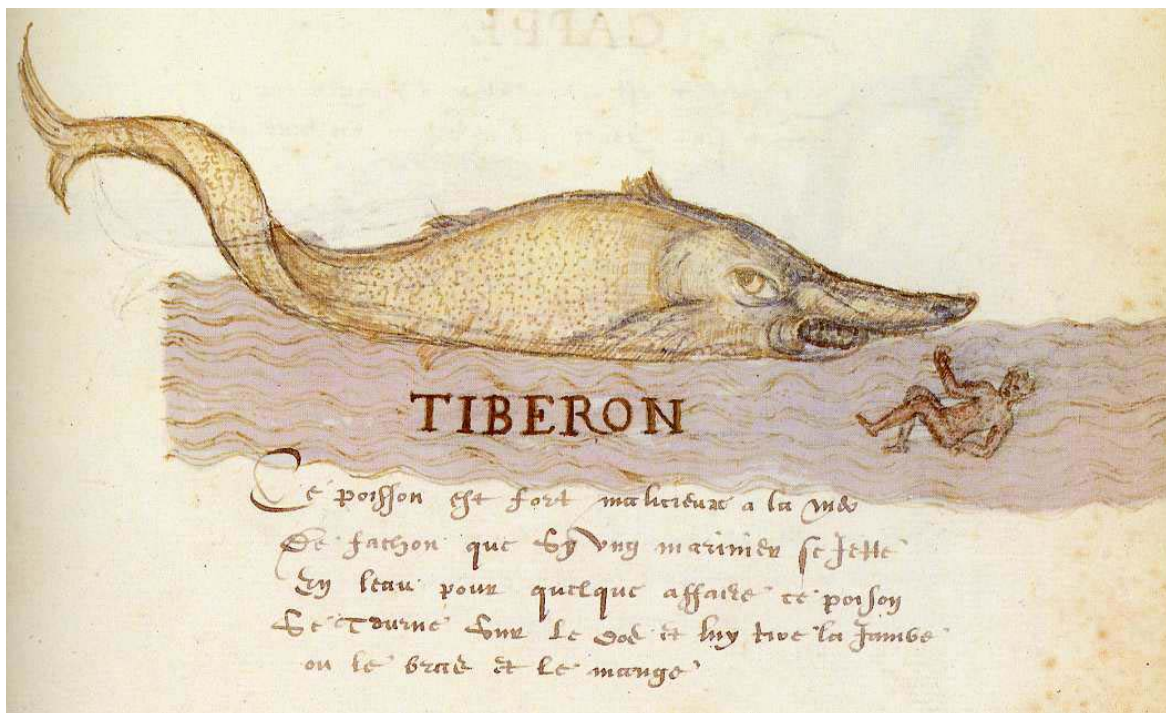 TIBERON
Ce poisson est fort malicieux a la mer
De fachon que Sy ung marinier se Jette
En leau pour quelque affaire ce poison
Se Tourne Sur le dos et luy tire la Jambe
ou le bras et le mange